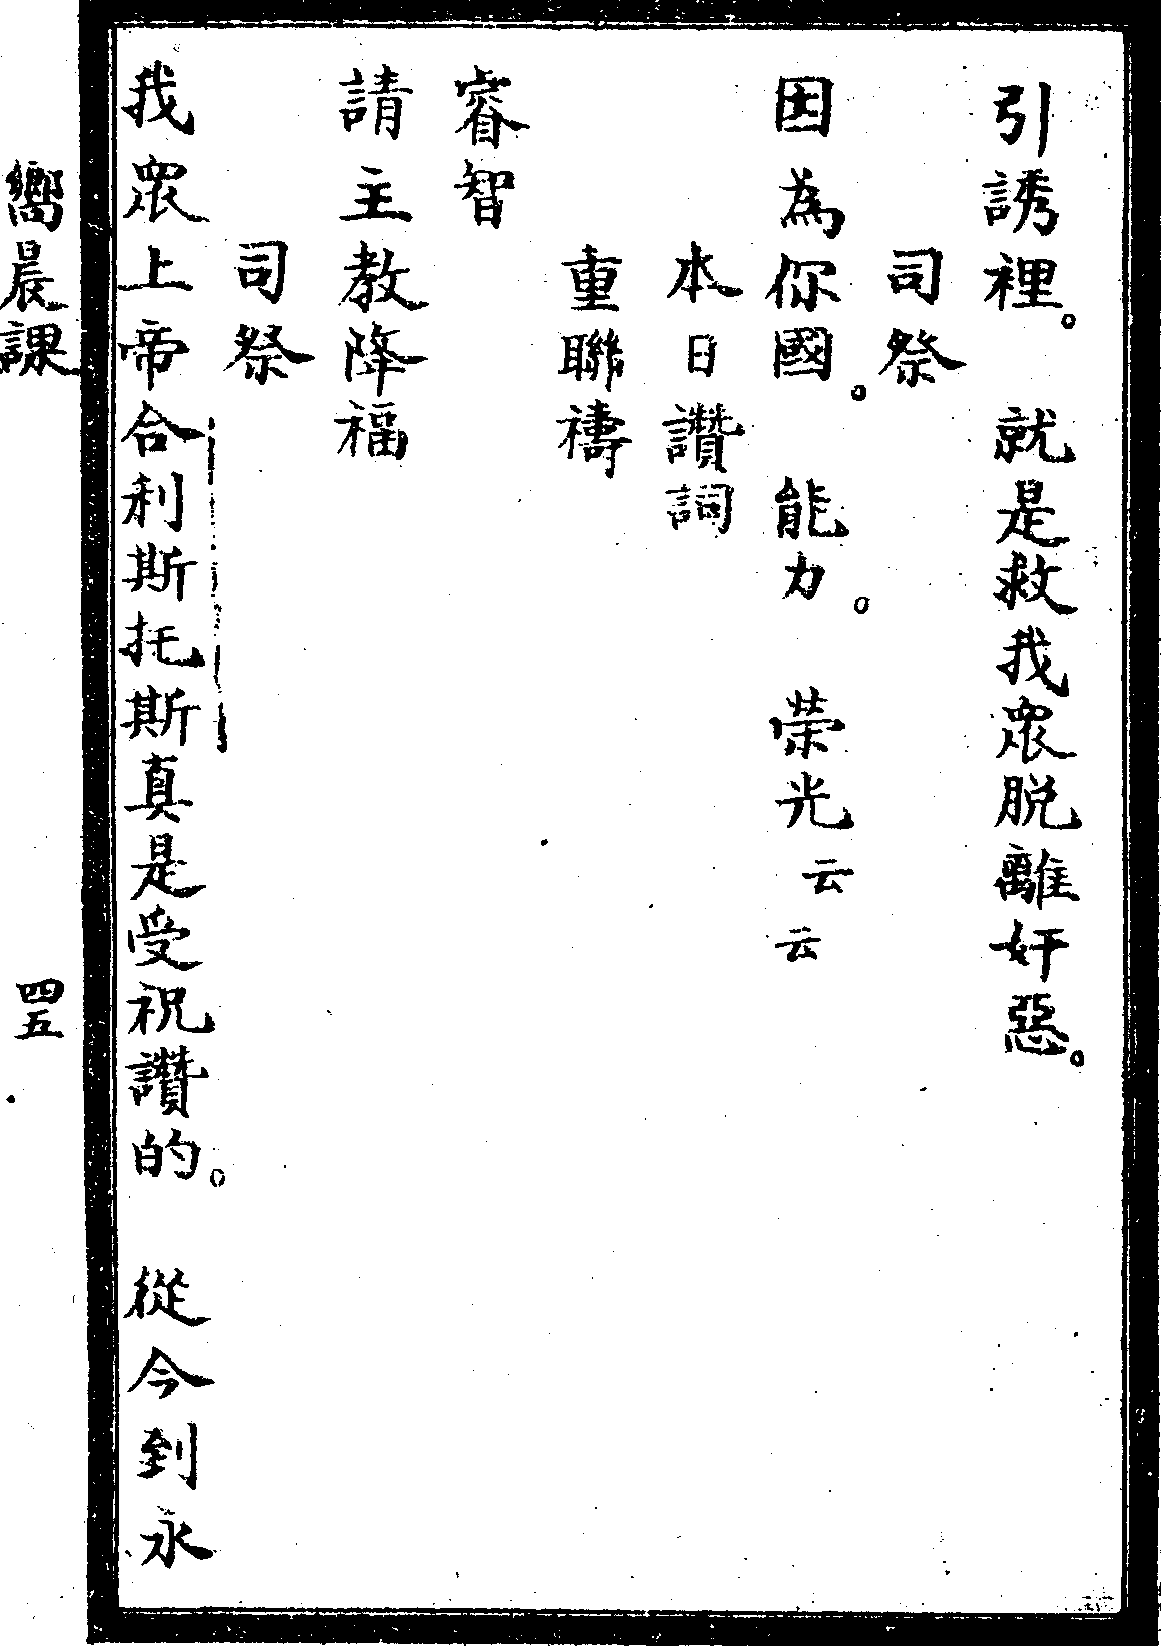 引誘裡。 就是救我眾脱離奸惡。
司祭
因為你國。 能力。 榮光云云
本日讚詞
重聯禱
睿智
請主教降福
司祭
我眾上帝合利斯托斯真是受祝讚的。 從今到永
嚮晨課
四五